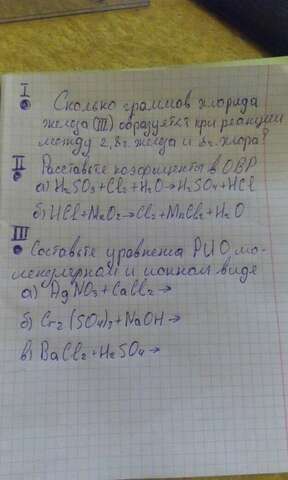 I
Сколько граммов хлорида
железа (III) образуется при реакции
между 2,8г. железа и 8г. хлора?
II
Расставьте коэфициенты в ОВР
а) H2SO3+Cl2+H2O→H2SO4+HCl
б) HCl+MnO2→Cl2+MnCl2+H2O
III
Составьте уравнения РИО мо-
лекулярном и ионном виде
а) AgNO3+CaCl2→
б) Cr2(SO4)3+NaOH→
в) BaCl2+H2SO4→